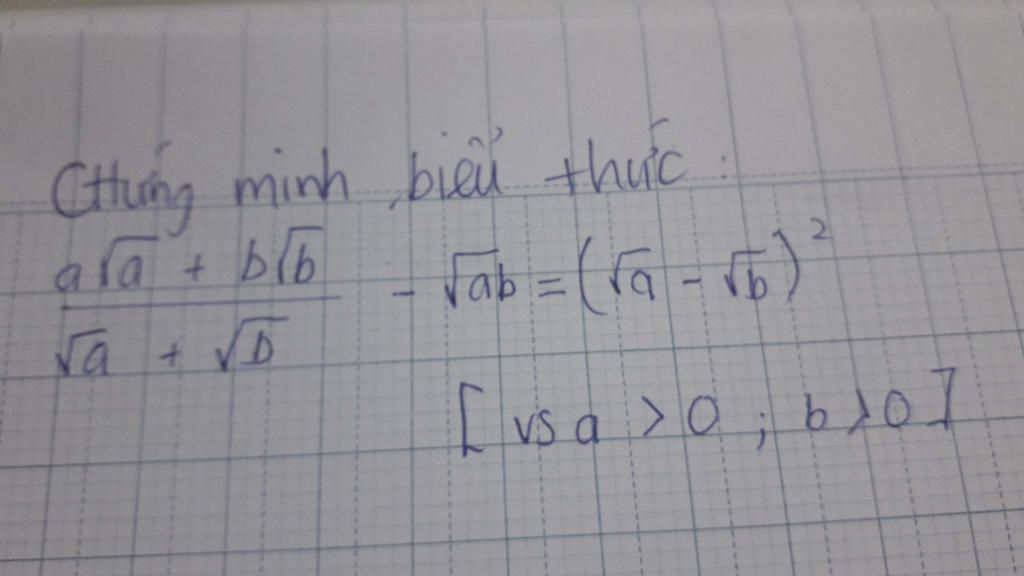 Chứng minh biểu thức:
a√a + b√b / √a + √b - √ab = (√a - √b)²
[vs a > 0 ; b > 0]